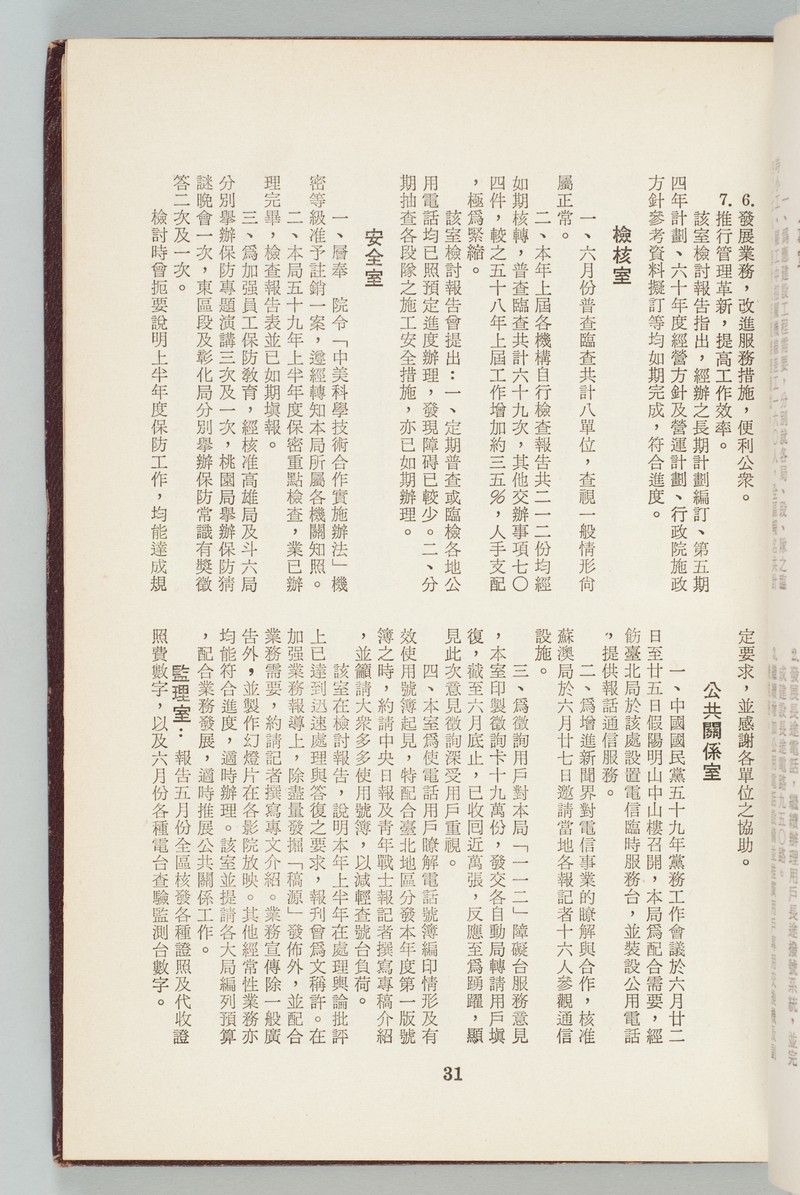 6.發展業務，改進服務措施，便利公衆。
7.推行管理革新，提高工作效率。
該室檢討報告指出，經辦之長期計劃編訂、第五期
四年計劃、六十年度經營方針及營運計劃、行政院施政
方針參考資料擬訂等均如期完成，符合進度。
檢核室
一、六月份普查臨查共計八單位，查視一般情形尙
屬正常。
二、本年上屆各機構自行檢查報告共二一二份均經
如期核轉，普查臨查共計六十九次，其他交辦事項七〇
四件，較之五十八年上屆工作增加約三五％，人手支配
，極爲緊縮。
該室檢討報告曾提出：一、定期普查或臨檢各地公
用電話均已照預定進度辦理，發現障碍已較少。二、分
期抽查各段隊之施工安全措施，亦已如期辦理。
安全室
一、層奉　院令「中美科學技術合作實施辦法」機
密等級准予註銷一案，遵經轉知本局所屬各機關知照。
二、本局五十九年上半年度保密重點檢查，業已辦
理完畢，檢查報告表並已如期塡報。
三、爲加强員工保防敎育，經核准高雄局及斗六局
分別擧辦保防專題演講三次及一次，桃園局擧辦保防猜
謎晚會一次，東區段及彰化局分別擧辦保防常識有獎徵
答二次及一次。
檢討時曾扼要說明上半年度保防工作，均能達成規
定要求，並感謝各單位之協助。
公共關係室
一、中國國民黨五十九年黨務工作會議於六月廿二
日至廿五日假陽明山中山樓召開，本局爲配合需要，經
飭臺北局於該處設置電信臨時服務台，並裝設公用電話
，提供報話通信服務。
二、爲增進新聞界對電信事業的瞭解與合作，核准
蘇澳局於六月廿七日邀請當地各報記者十六人參觀通信
設施。
三、爲徵詢用戶對本局「一一二」障礙台服務意見
，本室印製徵詢卡十九萬份，發交各自動局轉請用戶塡
復，截至六月底止，已收囘近萬張，反應至爲踴躍，顯
見此次意見徵詢深受用戶重視。
四、本室爲使電話用戶瞭解電話號簿編印情形及有
效使用號簿起見，特配合臺北地區分發本年度第一版號
簿之時，約請中央日報及靑年戰士報記者撰寫專稿介紹
，並籲請大衆多多使用號簿，以減輕查號台負荷。
該室在檢討報告，說明本年上半年在處理輿論批評
上已達到迅速處理與答復之要求，報刊曾爲文稱許。在
加强業務報導上，除盡量發掘「稿源」發佈外，並配合
業務需要，約請記者撰寫專文介紹。業務宣傳除一般廣
告外，並製作幻燈片在各影院放映。其他經常性業務亦
均能符合進度，適時辦理。該室並提請各大局編列預算
，配合業務發展，適時推展公共關係工作。
監理室：報告五月份全區核發各種證照及代收證
照費數字，以及六月份各種電台查驗監測台數字。
31